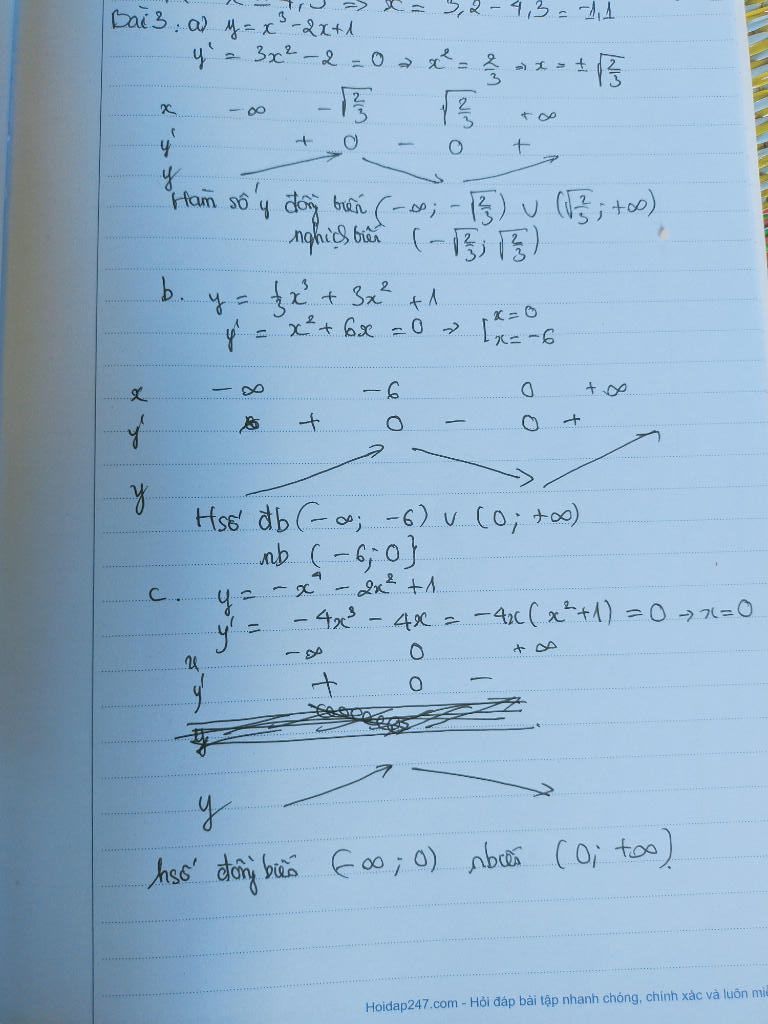 x = 3,2 - 4,3 = -1,1
Bài 3: a) y = x³ - 2x + 1
y' = 3x² - 2 = 0 ⇒ x² = 2/3 ⇒ x = ± √(2/3)
x -∞ -√(2/3) √(2/3) +∞
y' + 0 - 0 +
y
Hàm số y đồng biến (-∞; -√(2/3)) ∪ (√(2/3); +∞)
nghịch biến (-√(2/3); √(2/3))
b. y = 1/3 x³ + 3x² + 1
y' = x² + 6x = 0 → [x = 0
x = -6
x -∞ -6 0 +∞
y' + 0 - 0 +
y
Hsố đb (-∞; -6) ∪ (0; +∞)
nb (-6; 0}
c. y = -x⁴ - 2x² + 1
y' = -4x³ - 4x = -4x(x² + 1) = 0 → x = 0
x -∞ 0 +∞
y' + 0 -
y
y
hsố đồng biến (-∞; 0) (0; +∞).
Hoidap247.com - Hỏi đáp bài tập nhanh chóng, chính xác và luôn miễ